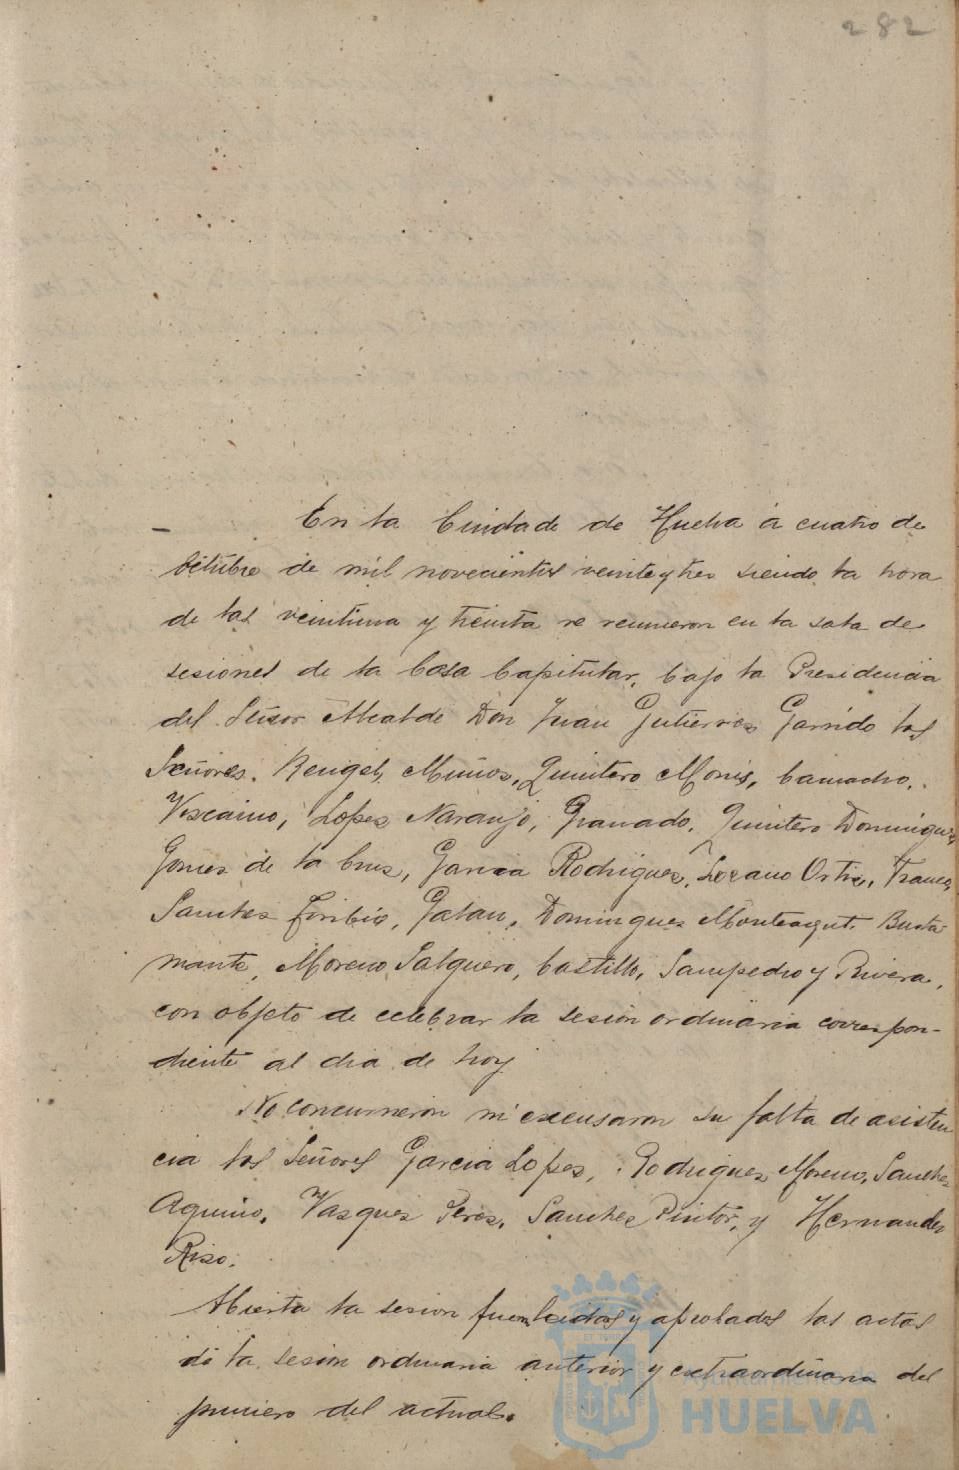 282
En la Ciudad de Huelva á cuatro de
Octubre de mil novecientos veinte y tres siendo la hora
de las veintiuna y treinta se reunieron en la sala de
sesiones de la Casa Capitular, bajo la Presidencia
del Señor Alcalde Don Juan Gutierrez Garrido los
Señores. Rengel, Muñoz, Quintero Monis, Camacho,
Vizcaino, Lopez Naranjo, Granado, Quintero Dominguez,
Gomez de la Cruz, Garcia Rodriguez, Lozano Ortiz, Franco,
Sanchez Toribio, Galan, Dominguez Monteagut. Busta-
mante, Moreno, Salguero, Castillo, Sampedro y Rivera,
con objeto de celebrar la sesion ordinaria correspon-
diente al dia de hoy
No concurrieron ni excusaron su falta de asisten
cia los Señores Garcia Lopez, Rodriguez Moreno, Sanchez
Aquino, Vazquez Perez, Sanchez Pintor, y Hernandez
Rizo.
Abierta la sesion fueron leidas y aprobadas las actas
de la sesion ordinaria anterior y extraordinaria del
primero del actual.
Ayuntamiento de
HUELVA